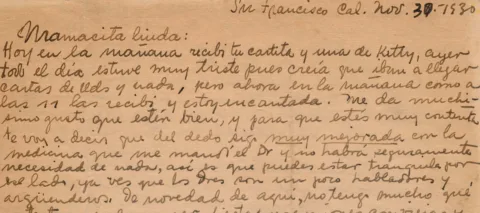 Sn Francisco Cal. Nov. 30-1930
Mamacita linda:
Hoy en la mañana recibi tu cartita y una de Kitty, ayer
todo el dia estuve muy triste pues creia que iban a llegar
cartas de Uds y nada, pero ahora en la mañana como a
las 11 las recibi, y estoy encantada. Me da muchi-
simo gusto que estén bien, y para que estés muy contenta
te voy a decir que del dedo sigo muy mejorada con la
medicina que me mandó el Dr y no habrá seguramente
necesidad de nada, asi es que puedes estar tranquila por
ese lado, ya ves que los Dres son un poco habladores y
argüenderos. De novedad de aqui, no tengo mucho que